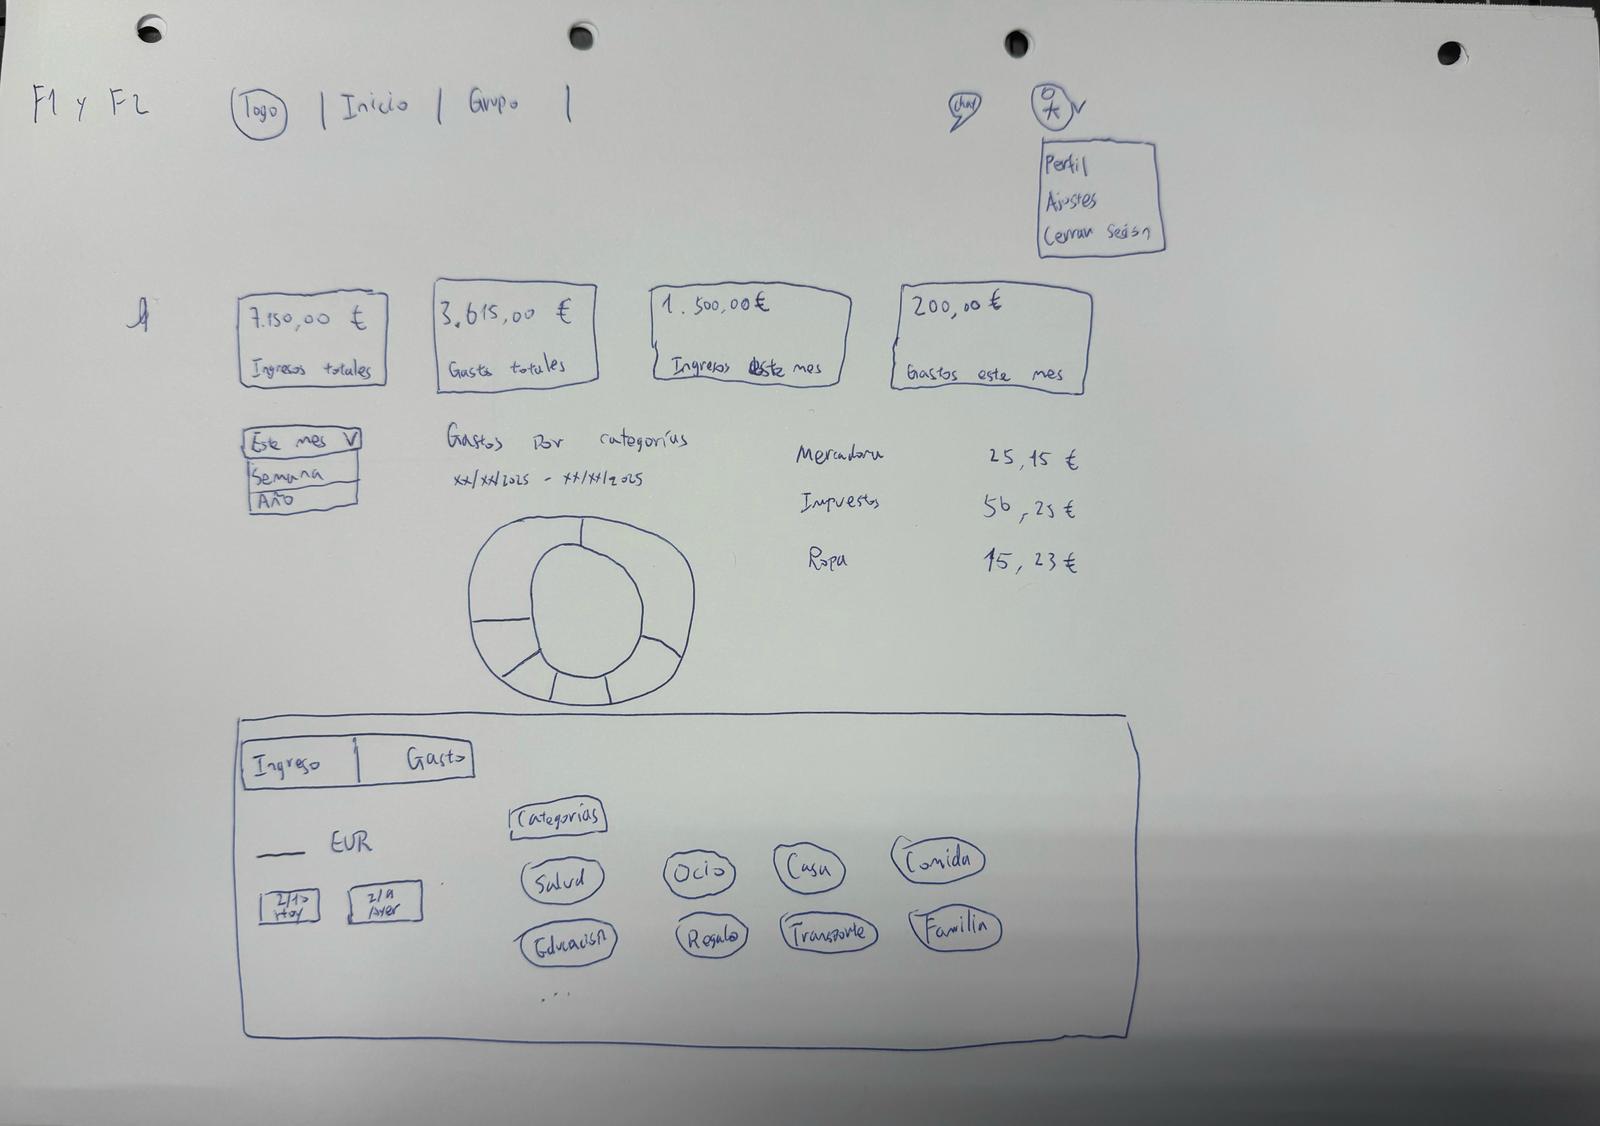 F1 y F2
Logo | Inicio | Grupo |
chat
Perfil
Ajustes
Cerrar Sesión
7.150,00 €
Ingresos totales
3.615,00 €
Gasto totales
1.500,00 €
Ingresos este mes
200,00 €
Gastos este mes
Este mes V
Semana
Año
Gastos por categorías
xx/xx/2025 - xx/xx/2025
Mercadona 25,15 €
Impuestos 56,25 €
Ropa 15,23 €
Ingreso | Gasto
___ EUR
Hoy
Ayer
Categorías
Salud Ocio Casa Comida
Educación Regalo Transporte Familia
...